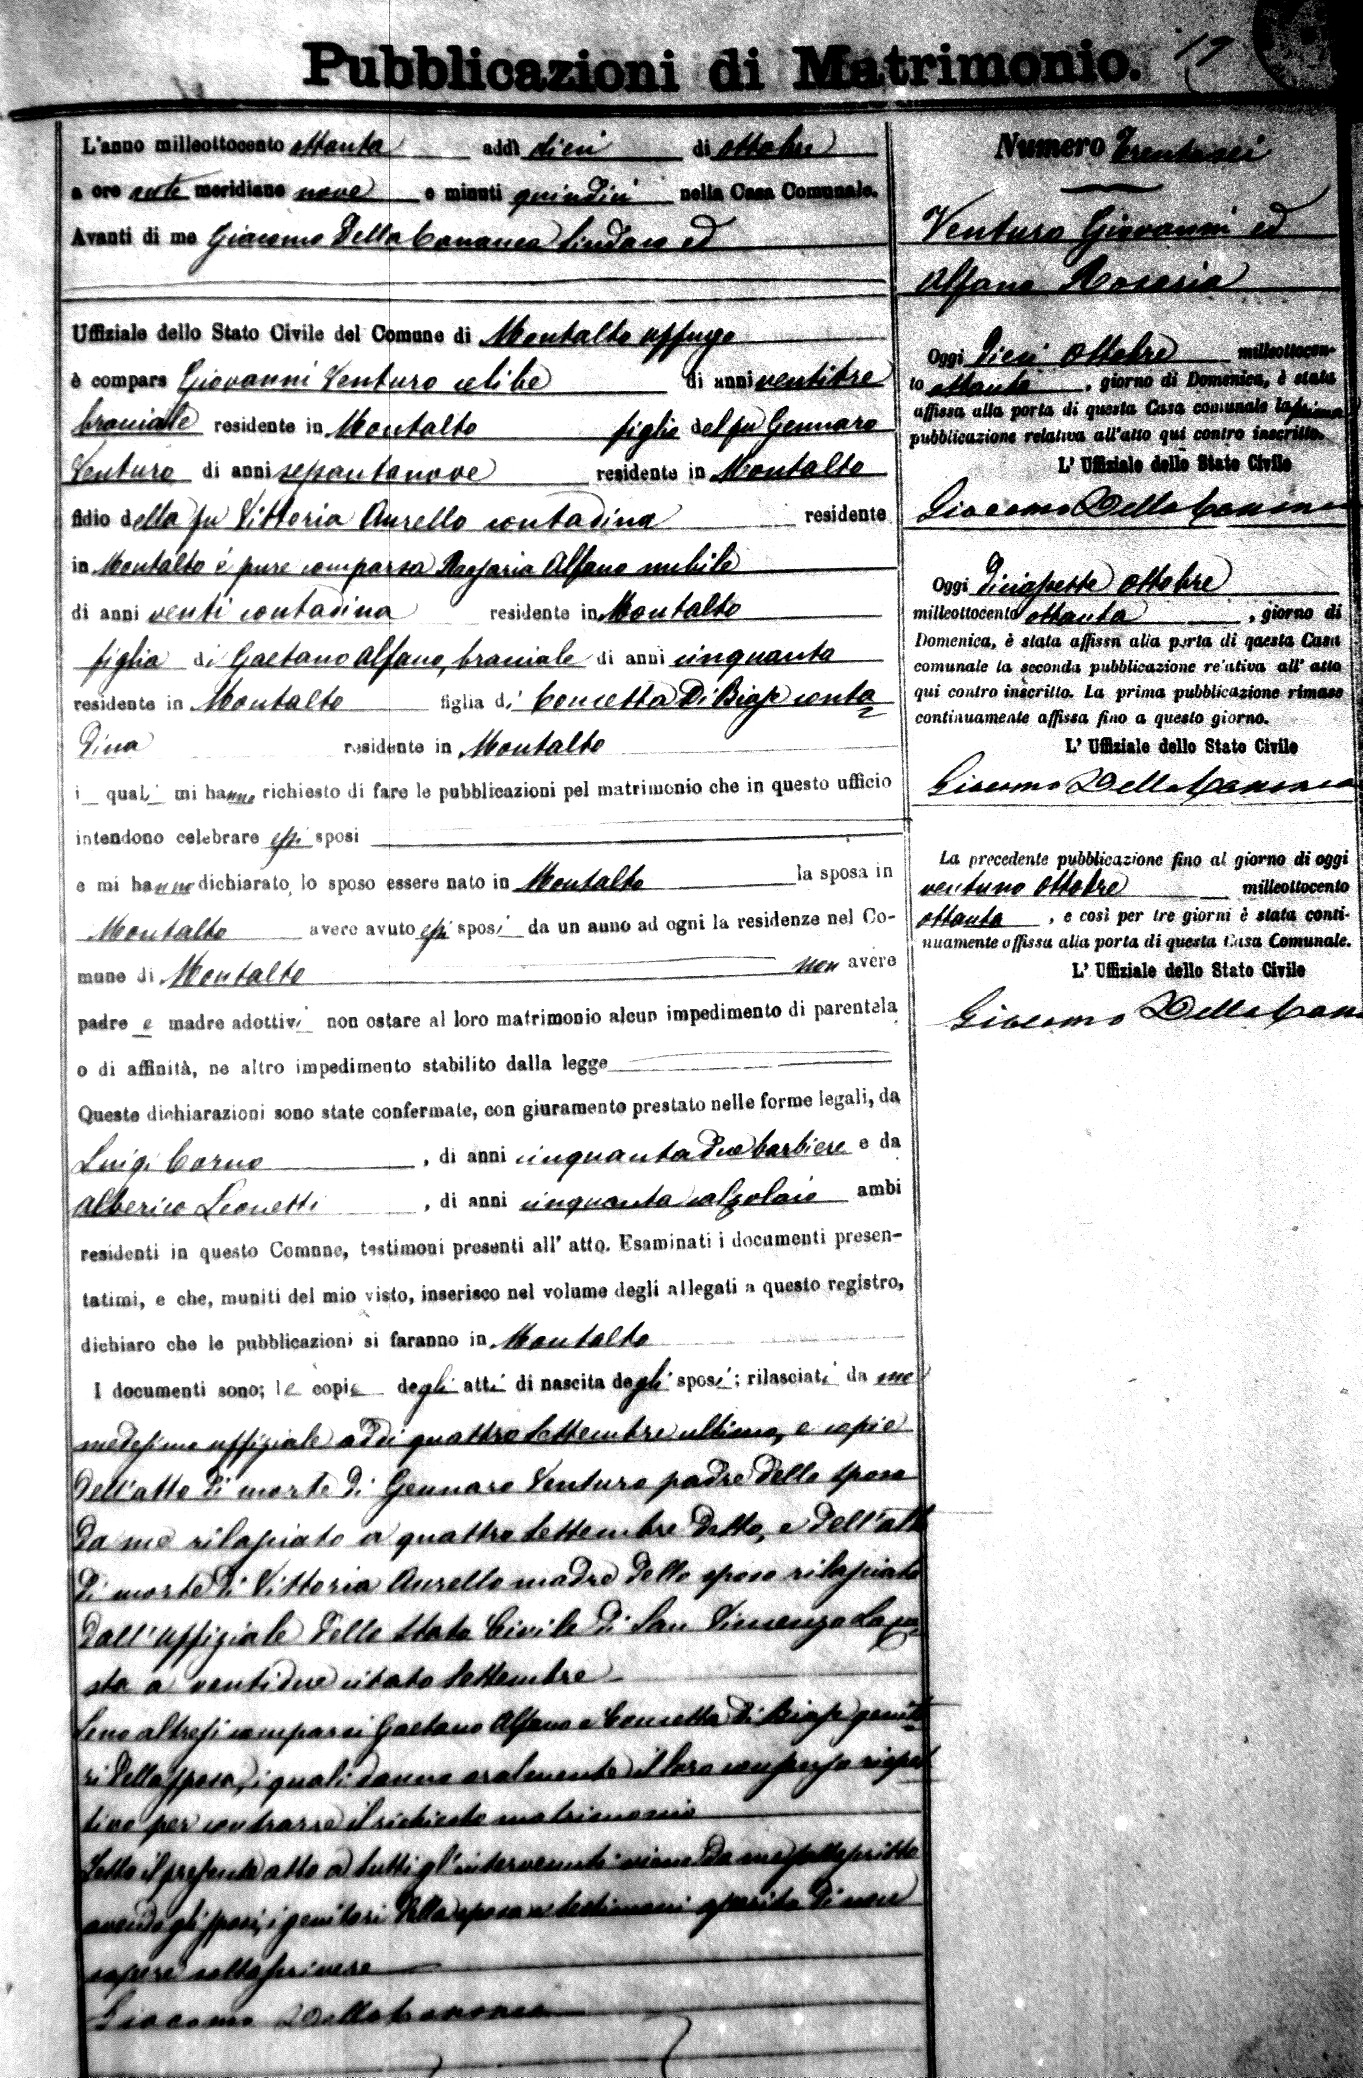 Pubblicazioni di Matrimonio. 17
L'anno milleottocento ottanta addì dieci di ottobre
a ore ante meridiane nove e minuti quindici nella Casa Comunale.
Avanti di me Giacomo Della Cananea Sindaco ed
Uffiziale dello Stato Civile del Comune di Montalto Uffugo
è compars Giovanni Venturo celibe di anni ventitre
braciale residente in Montalto figlio del fu Gennaro
Venturo di anni residente in Montalto
della fu Vittoria Aurello contadina residente
in Montalto è pure comparsa Rosaria Alfano nubile
di anni venti contadina residente in Montalto
figlia di Gaetano Alfano, braciale di anni cinquanta
residente in Montalto figlia di Concetta Di Biase conta=
dina residente in Montalto
i quali mi hanno richiesto di fare le pubblicazioni pel matrimonio che in questo ufficio
intendono celebrare essi sposi
e mi hanno dichiarato, lo sposo essere nato in Montalto la sposa in
Montalto avere avuto essi sposi da un anno ad ogni la residenze nel Co-
mune di Montalto non avere
padre e madre adottivi non ostare al loro matrimonio alcun impedimento di parentela
o di affinità, ne altro impedimento stabilito dalla legge
Queste dichiarazioni sono state confermate, con giuramento prestato nelle forme legali, da
Luigi Corno, di anni cinquantadue barbiere e da
Alberico Leonetti, di anni cinquanta calzolaio ambi
residenti in questo Comune, testimoni presenti all' atto. Esaminati i documenti presen-
tatimi, e che, muniti del mio visto, inserisco nel volume degli allegati a questo registro,
dichiaro che le pubblicazioni si faranno in Montalto
I documenti sono; le copie degli atti di nascita degli sposi; rilasciati da me
medesimo uffiziale addì quattro Settembre ultimo, e copie
dell'atto di morte di Gennaro Venturo padre dello sposo
da me rilasciato a quattro Settembre detto, e dell'atto
di morte di Vittoria Aurello madre dello sposo rilasciato
dall'uffiziale dello Stato Civile di San Vincenzo La Co=
sta a ventidue citato Settembre
Sono altresì comparsi Gaetano Alfano e Concetta Di Biase genito
ri della sposa, i quali danno oralmente il loro consenso rispet
tivo per contrarre il richiesto matrimonio
Letto il presente atto a tutti gl'intervenuti viene da me sottoscritto
avendo gli sposi, i genitori della sposa e testimoni asserito di non
sapere sottoscrivere
Giacomo Della Cananea
Numero Trentasei
Venturo Giovanni ed
Alfano Rosaria
Oggi Dieci Ottobre milleottocen-
to ottanta, giorno di Domenica, è stata
affissa alla porta di questa Casa comunale la prima
pubblicazione relativa all'atto qui contro inscritto.
L' Uffiziale dello Stato Civile
Giacomo Della Cananea
Oggi Diciassette Ottobre
milleottocento ottanta, giorno di
Domenica, è stata affissa alla porta di questa Casa
comunale la seconda pubblicazione relativa all' atto
qui contro inscritto. La prima pubblicazione rimase
continuamente affissa fino a questo giorno.
L' Uffiziale dello Stato Civile
Giacomo Della Cananea
La precedente pubblicazione fino al giorno di oggi
ventuno Ottobre milleottocento
ottanta, e così per tre giorni è stata conti-
nuamente affissa alla porta di questa Casa Comunale.
L' Uffiziale dello Stato Civile
Giacomo Della Cana